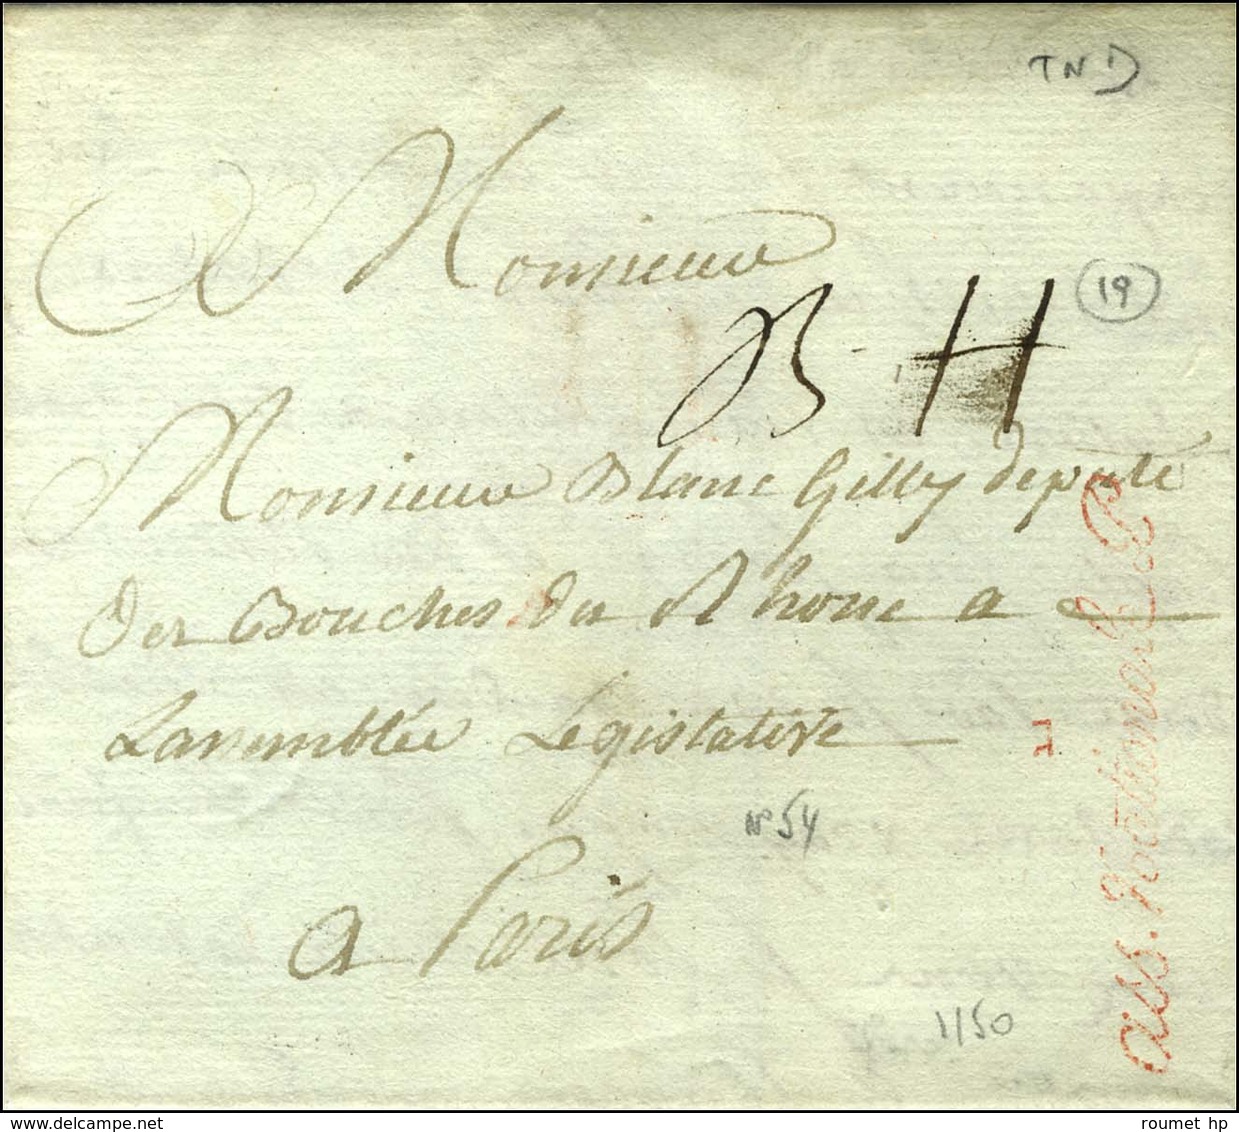 TND
Monsieur
19
B H
Monsieur Blanc Gilly deputé
Des Bouches du Rhone a
Lassemblée Legistative
n° 54
a Paris
1150
Ass. Nationale
roumet hp